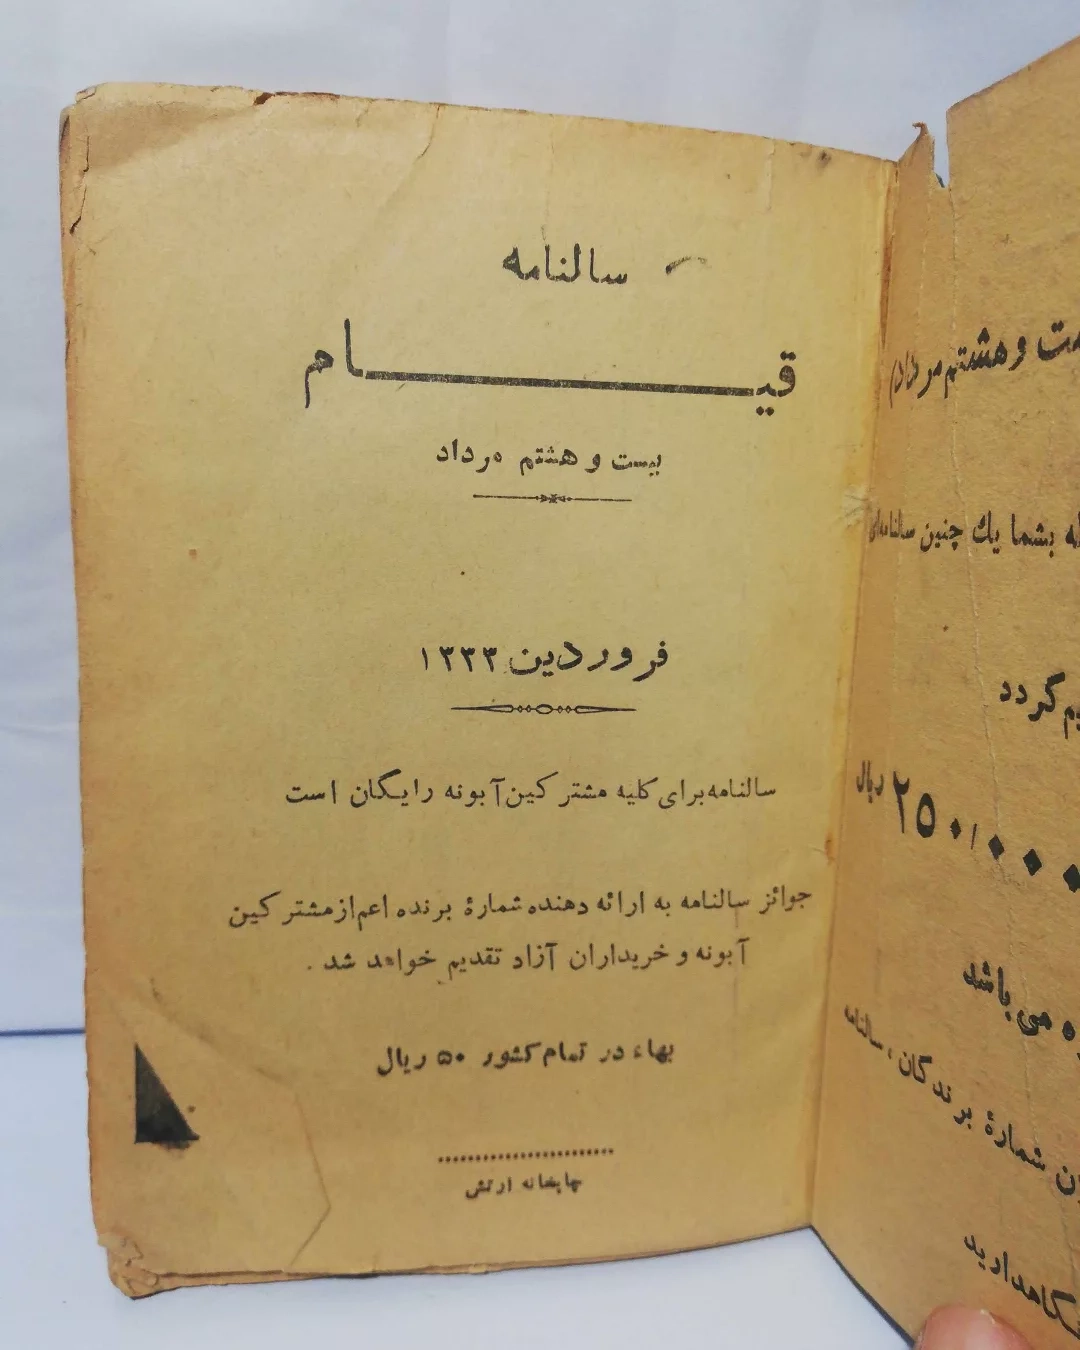 سالنامه
قیام
بیست و هشتم مرداد
فروردین ۱۳۳۳
سالنامه برای کلیه مشترکین آبونه رایگان است
جوائز سالنامه به ارائه دهنده شمارهٔ برنده اعم از مشترکین
آبونه و خریداران آزاد تقدیم خواهد شد .
بهاء در تمام کشور ۵۰ ریال
چاپخانه ارتش
و هشتم مرداد)
بشما یك چنین سالنامه‌ای
گردد
۲۵۰/۰۰۰ ریال
می باشد
شمارهٔ برندگان ، سالنامه